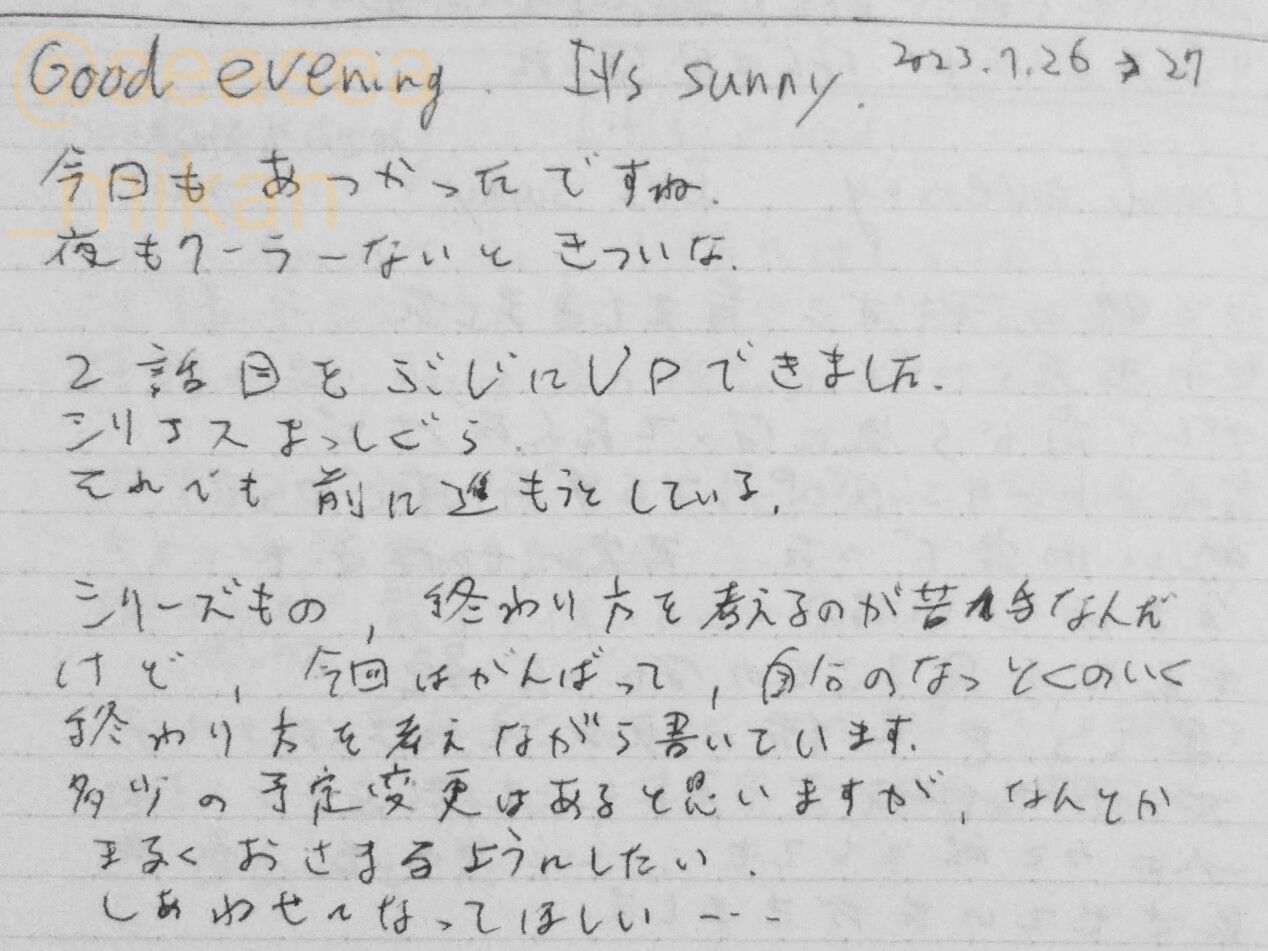 Good evening. It's sunny. 2023.7.26→27
今日もあつかったですね.
夜もクーラーないときついな.
2話目をぶじにUPできました.
シリアスまっしぐら.
それでも前に進もうとしている.
シリーズもの,終わり方を考えるのが苦手なんだ
けど,今回はがんばって,自分のなっとくのいく
終わり方を考えながら書いています.
多少の予定変更はあると思いますが,なんとか
まるくおさまるようにしたい.
しあわせになってほしい---
_mikan